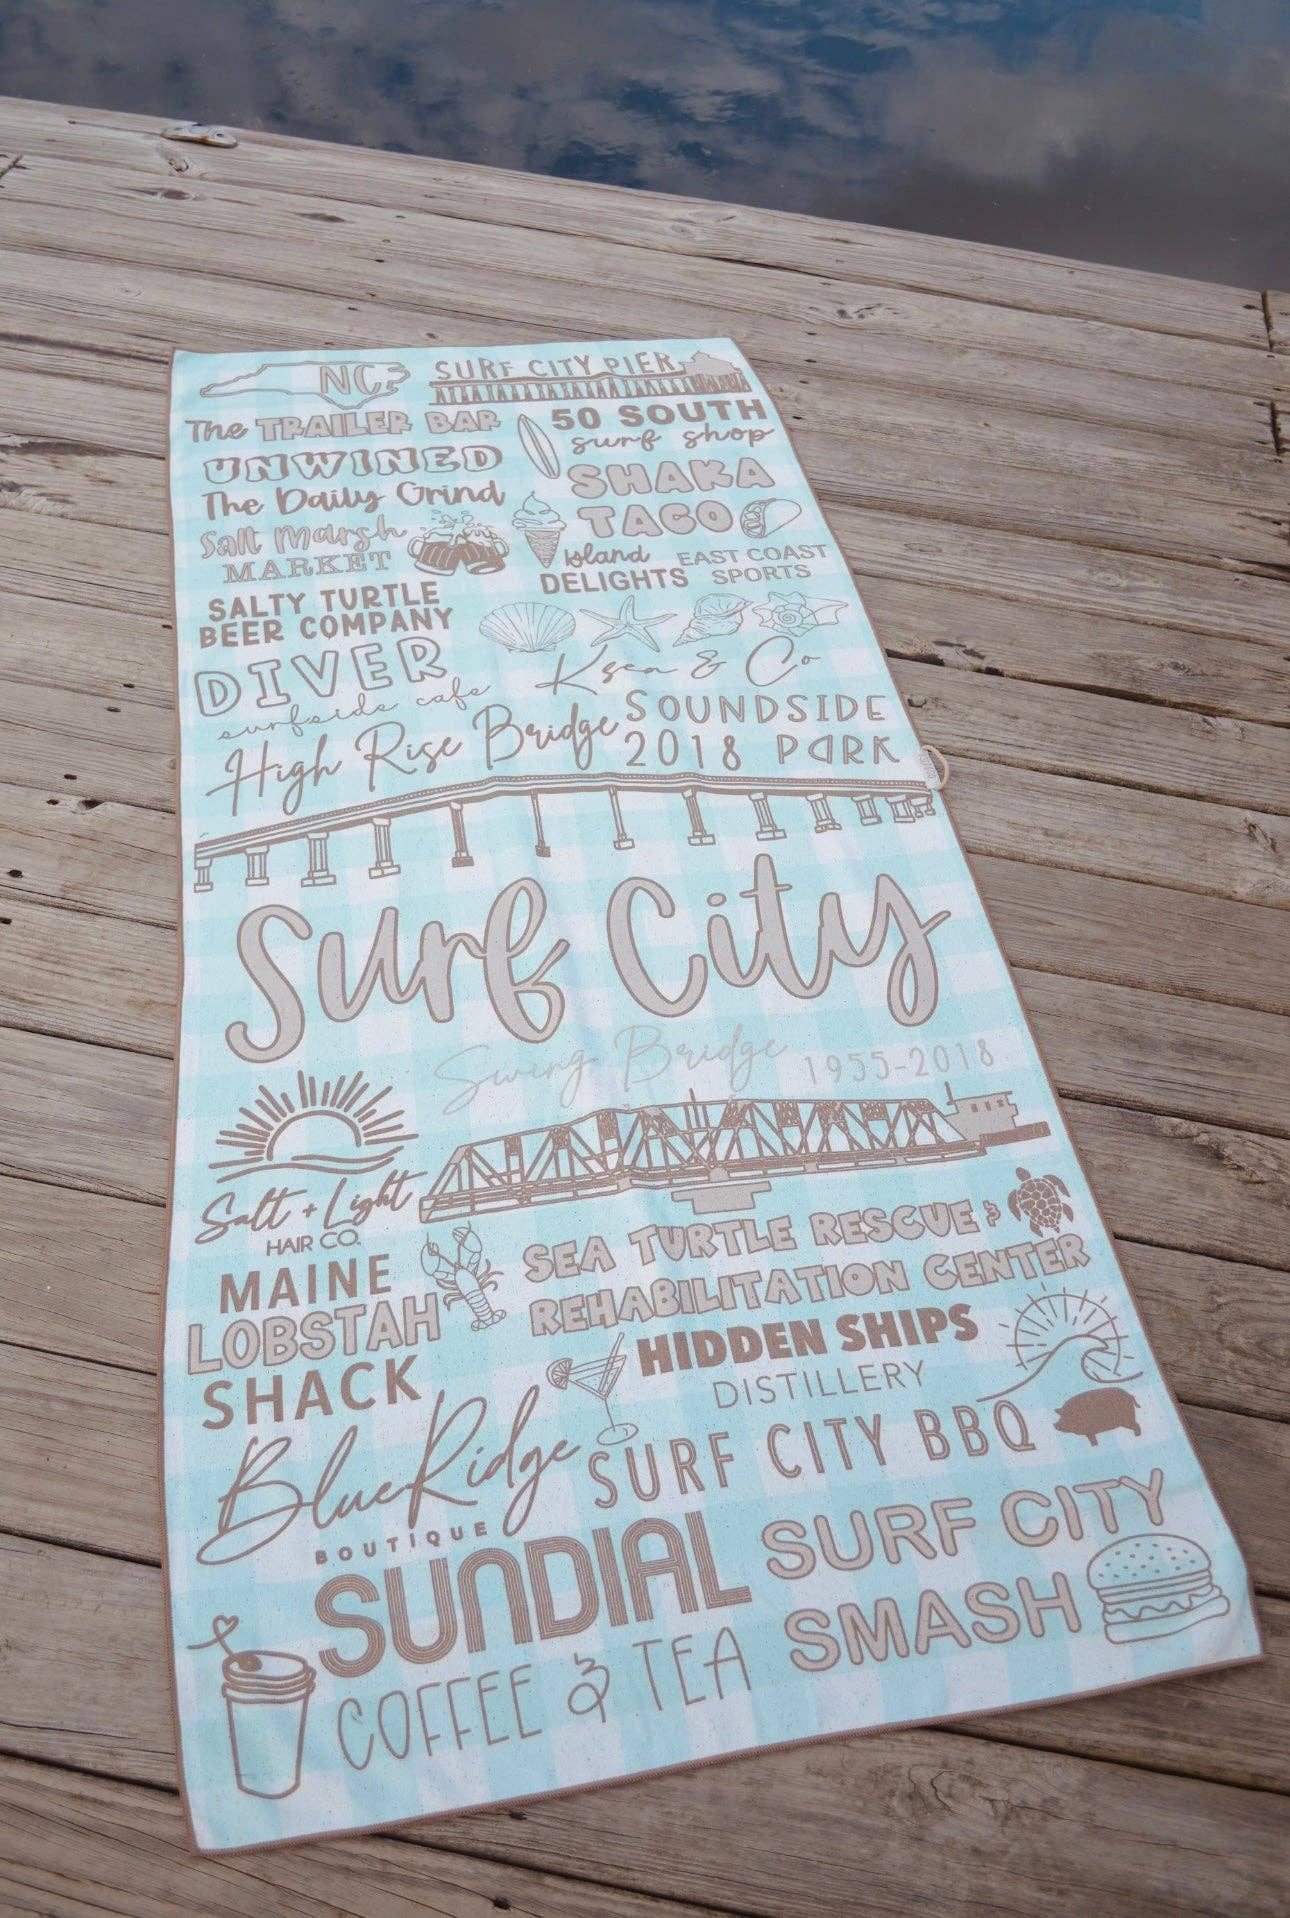 NC
SURF CITY PIER
The TRAILER BAR
50 SOUTH
surf shop
UNWINED
The Daily Grind
SHAKA
TACO
Salt Marsh
MARKET
Island
DELIGHTS
EAST COAST
SPORTS
SALTY TURTLE
BEER COMPANY
DIVER
surfside cafe
Ksea & Co
High Rise Bridge
2018
SOUNDSIDE
PARK
Surf City
Swing Bridge 1955-2018
Salt + Light
HAIR CO.
SEA TURTLE RESCUE &
REHABILITATION CENTER
MAINE
LOBSTAH
SHACK
HIDDEN SHIPS
DISTILLERY
BlueRidge
BOUTIQUE
SURF CITY BBQ
SUNDIAL
COFFEE & TEA
SURF CITY
SMASH